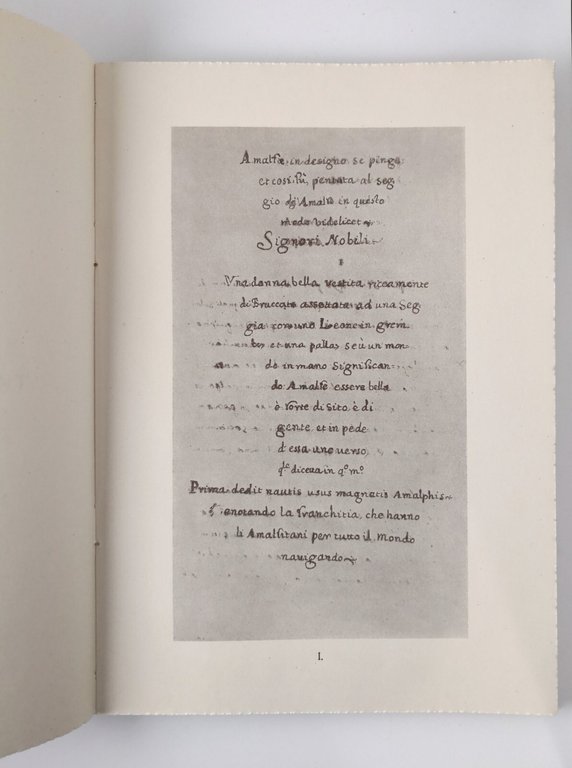 Amalfæ in designo se pinge
et cosi fù, pentata al seg
gio di Amalfe in questo
modo videlicet
Signori Nobili
I
Vna donna bella vestita riccamente
di Broccato assettata ad una Seg
gia con uno Leone in grem
bo, et una palla, seù un mon-
do in mano significan-
do Amalfe essere bella
è forte di sito, è di
gente, et in pede
d'essa uno verso,
qle diceva in qo mo
Prima dedit nautis usus magnetis Amalphis
enotando la franchitia, che hanno
li Amalfitani per tutto il mondo
navigando
I.